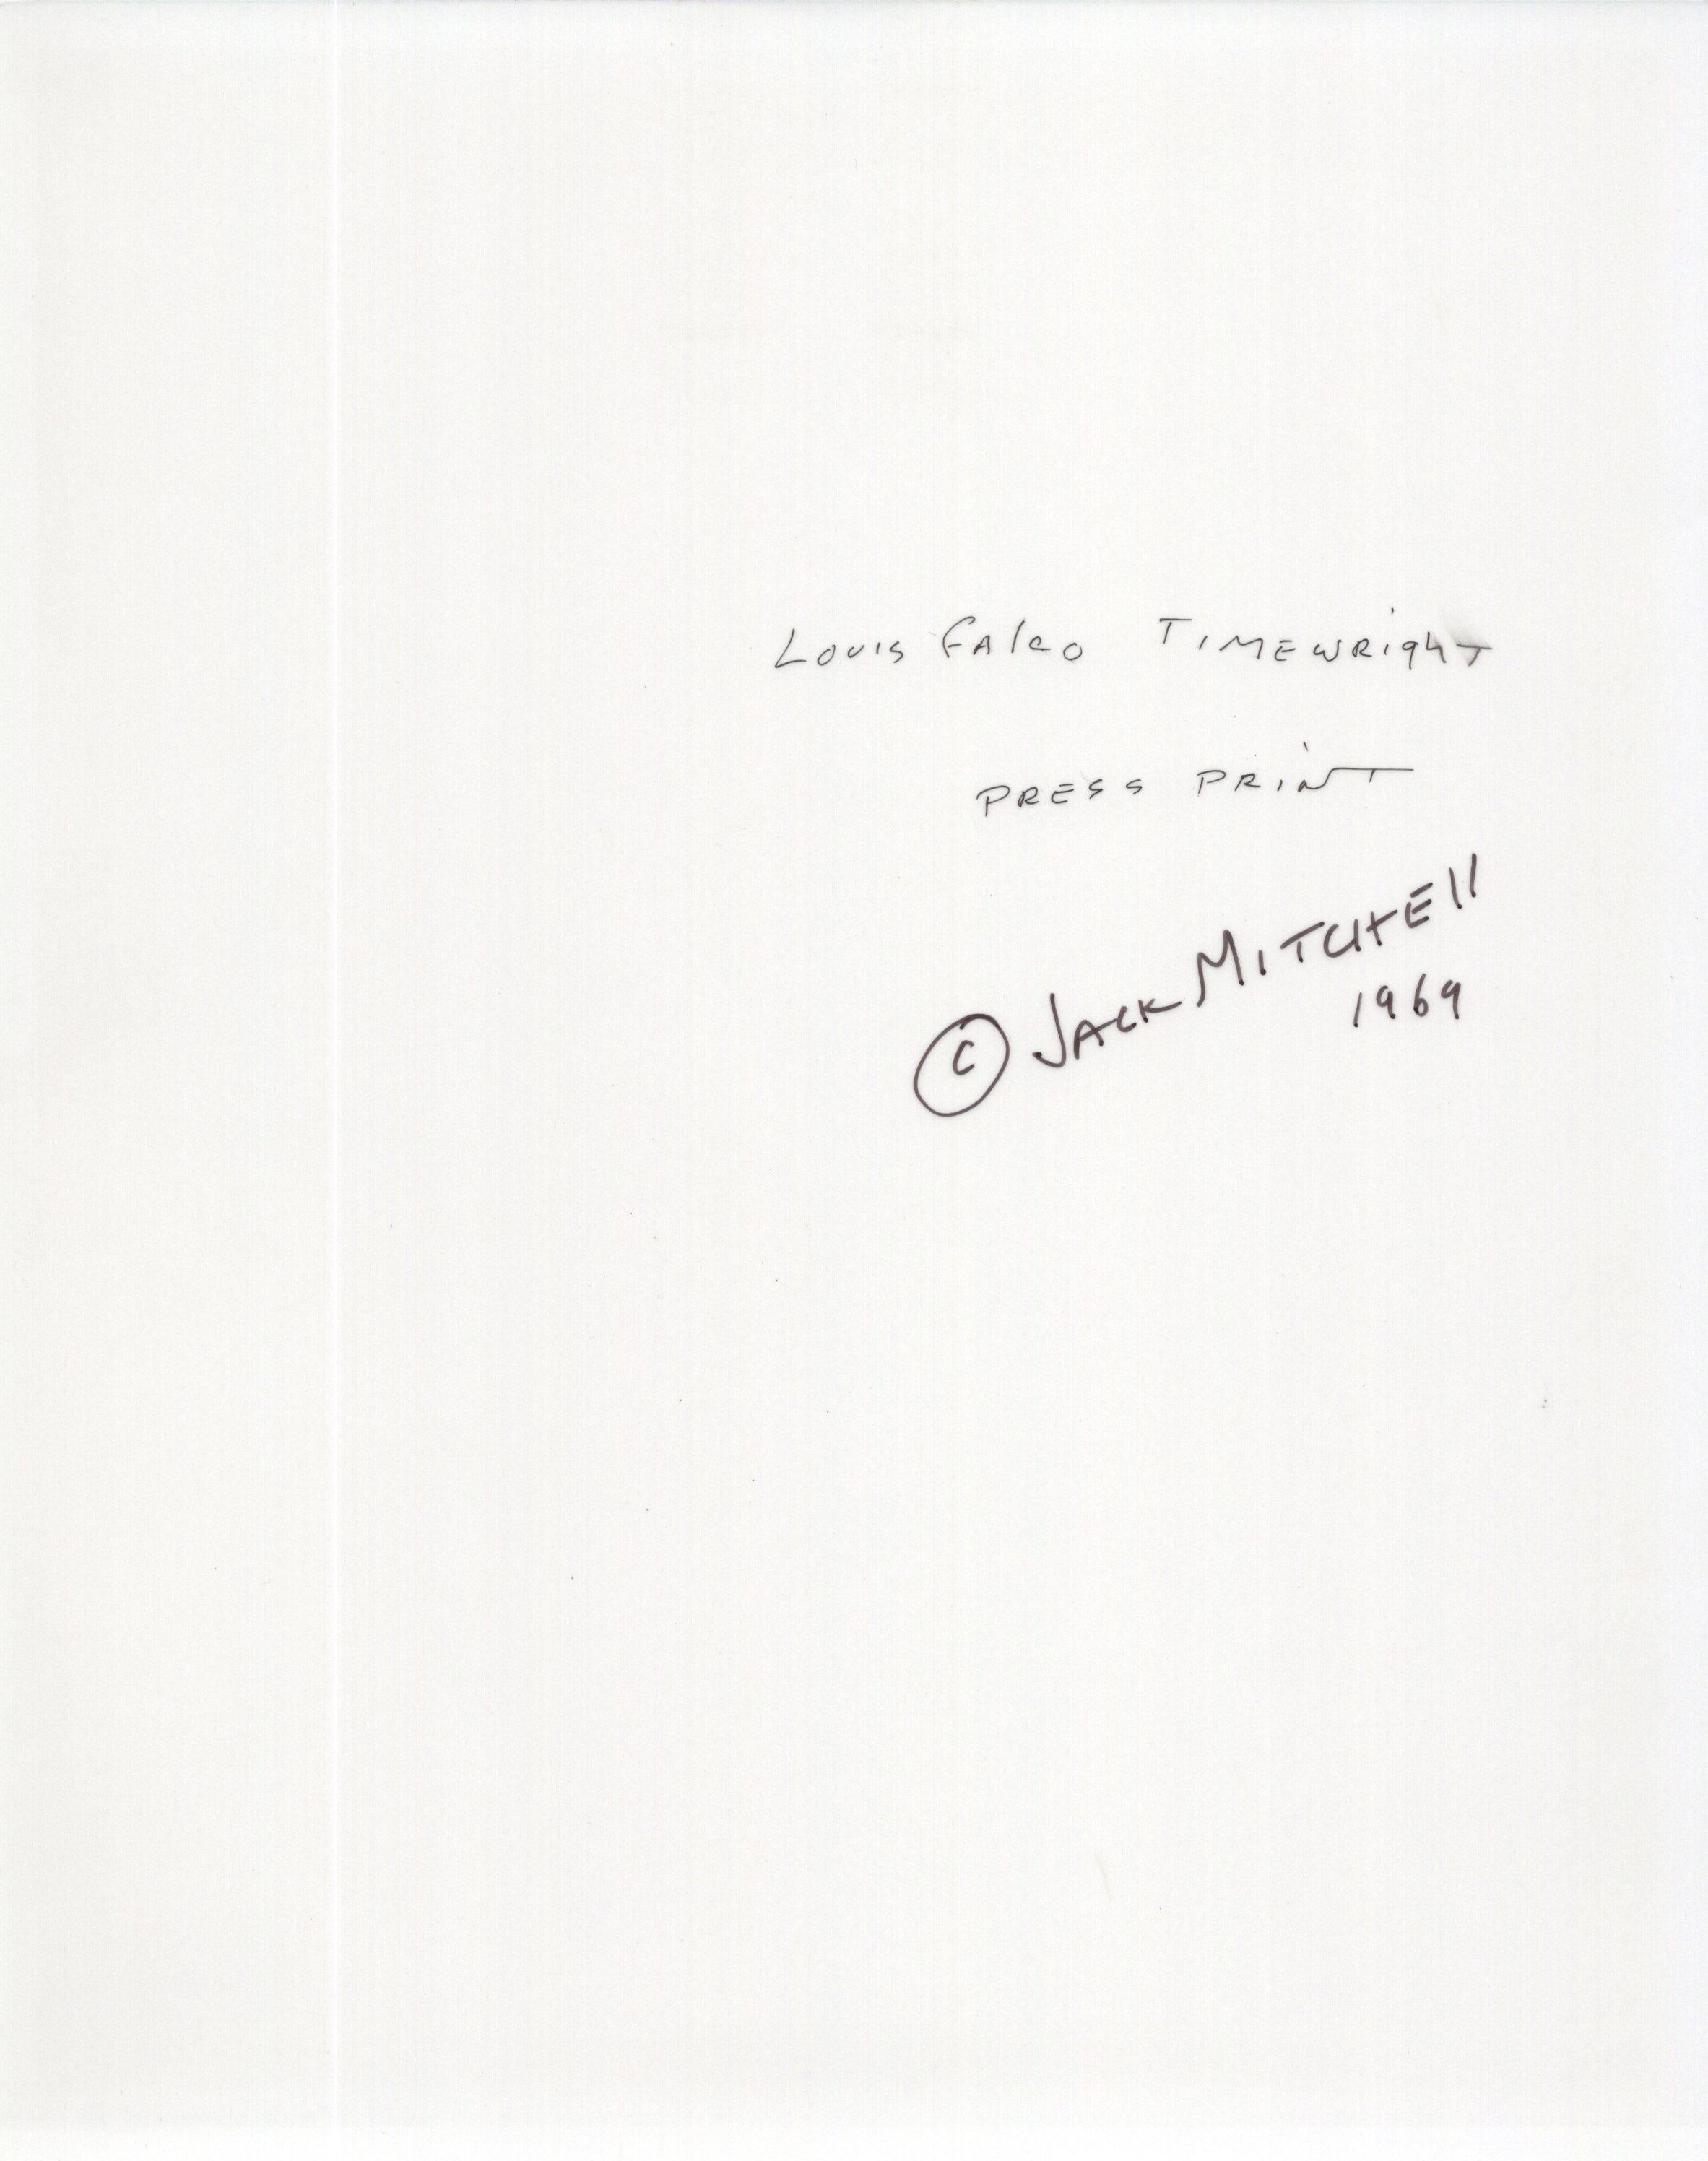 Louis Falco TIMEWRIGHT
PRESS PRINT
© JACK MITCHELL
1969